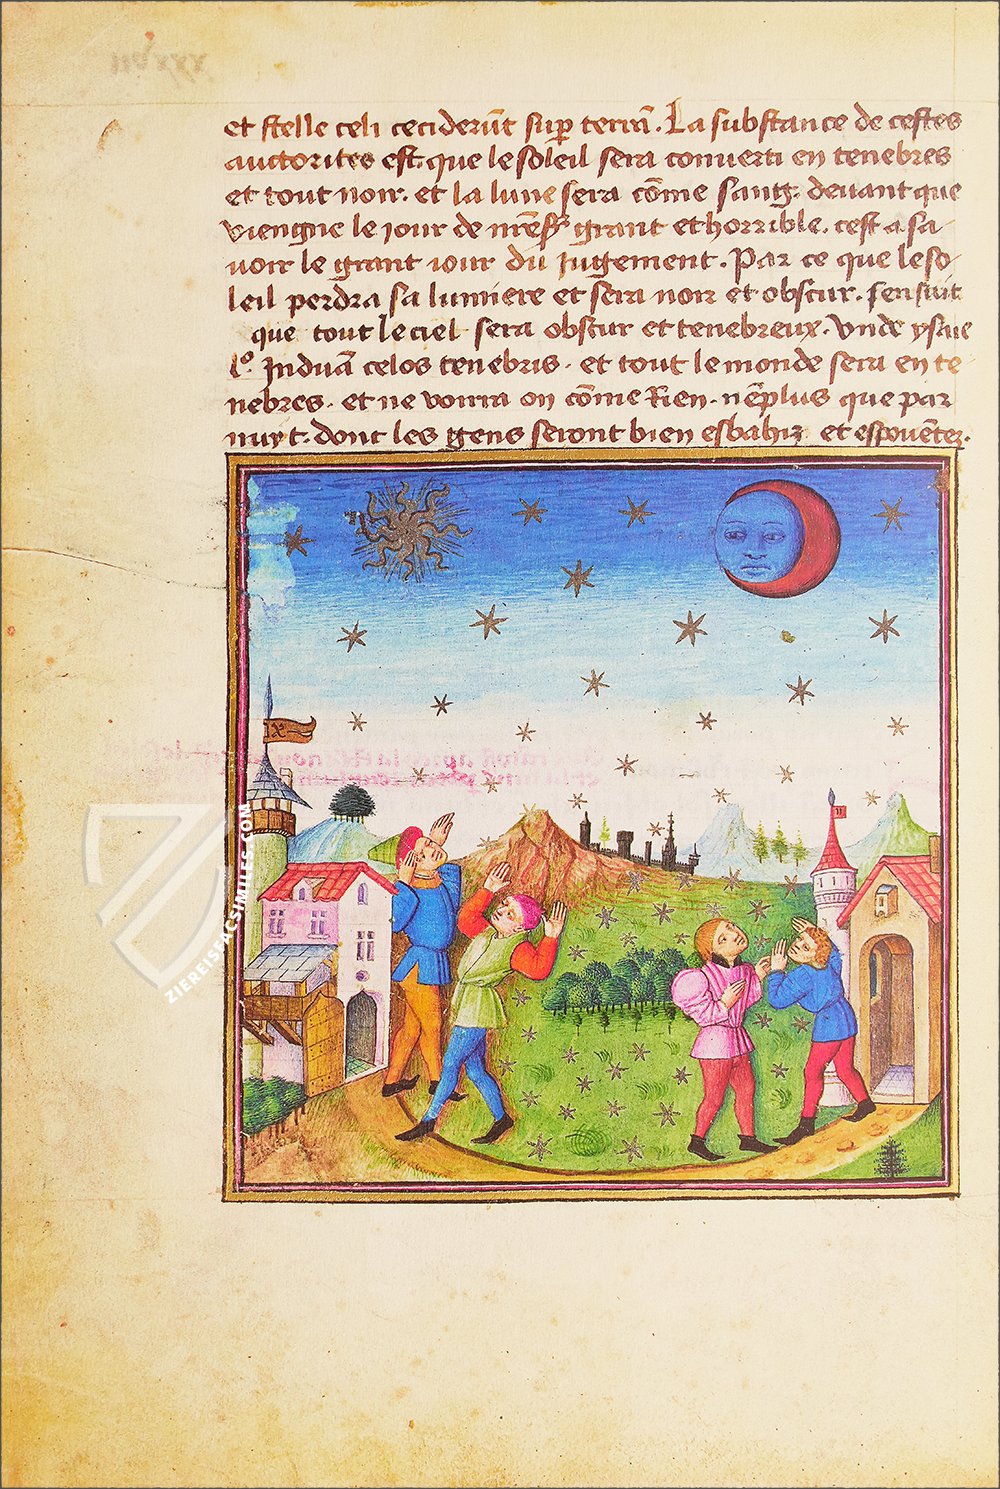 et stelle celi ceciderūt sup̄ terrā. La substance de cestes
auctorites est. que le soleil sera conuerti en tenebres
et tout noir. et la lune sera cōme sang. deuant que
viengne le iour de nr̄e sr̄ grant et horrible. cest a sa
uoir le grant iour du iugement. Par ce que le so
leil perdra sa lumiere et sera noir et obscur. sensuit
que tout le ciel sera obscur et tenebreux. Vnde ysaie
l°. Induā celos tenebris. et tout le monde sera en te
nebres. et ne uoirra on cōme Rien. nē plus que par
nuyt. dont les gens seront bien esbahiz et espouētez.
ZIEREISFACSIMILES.COM